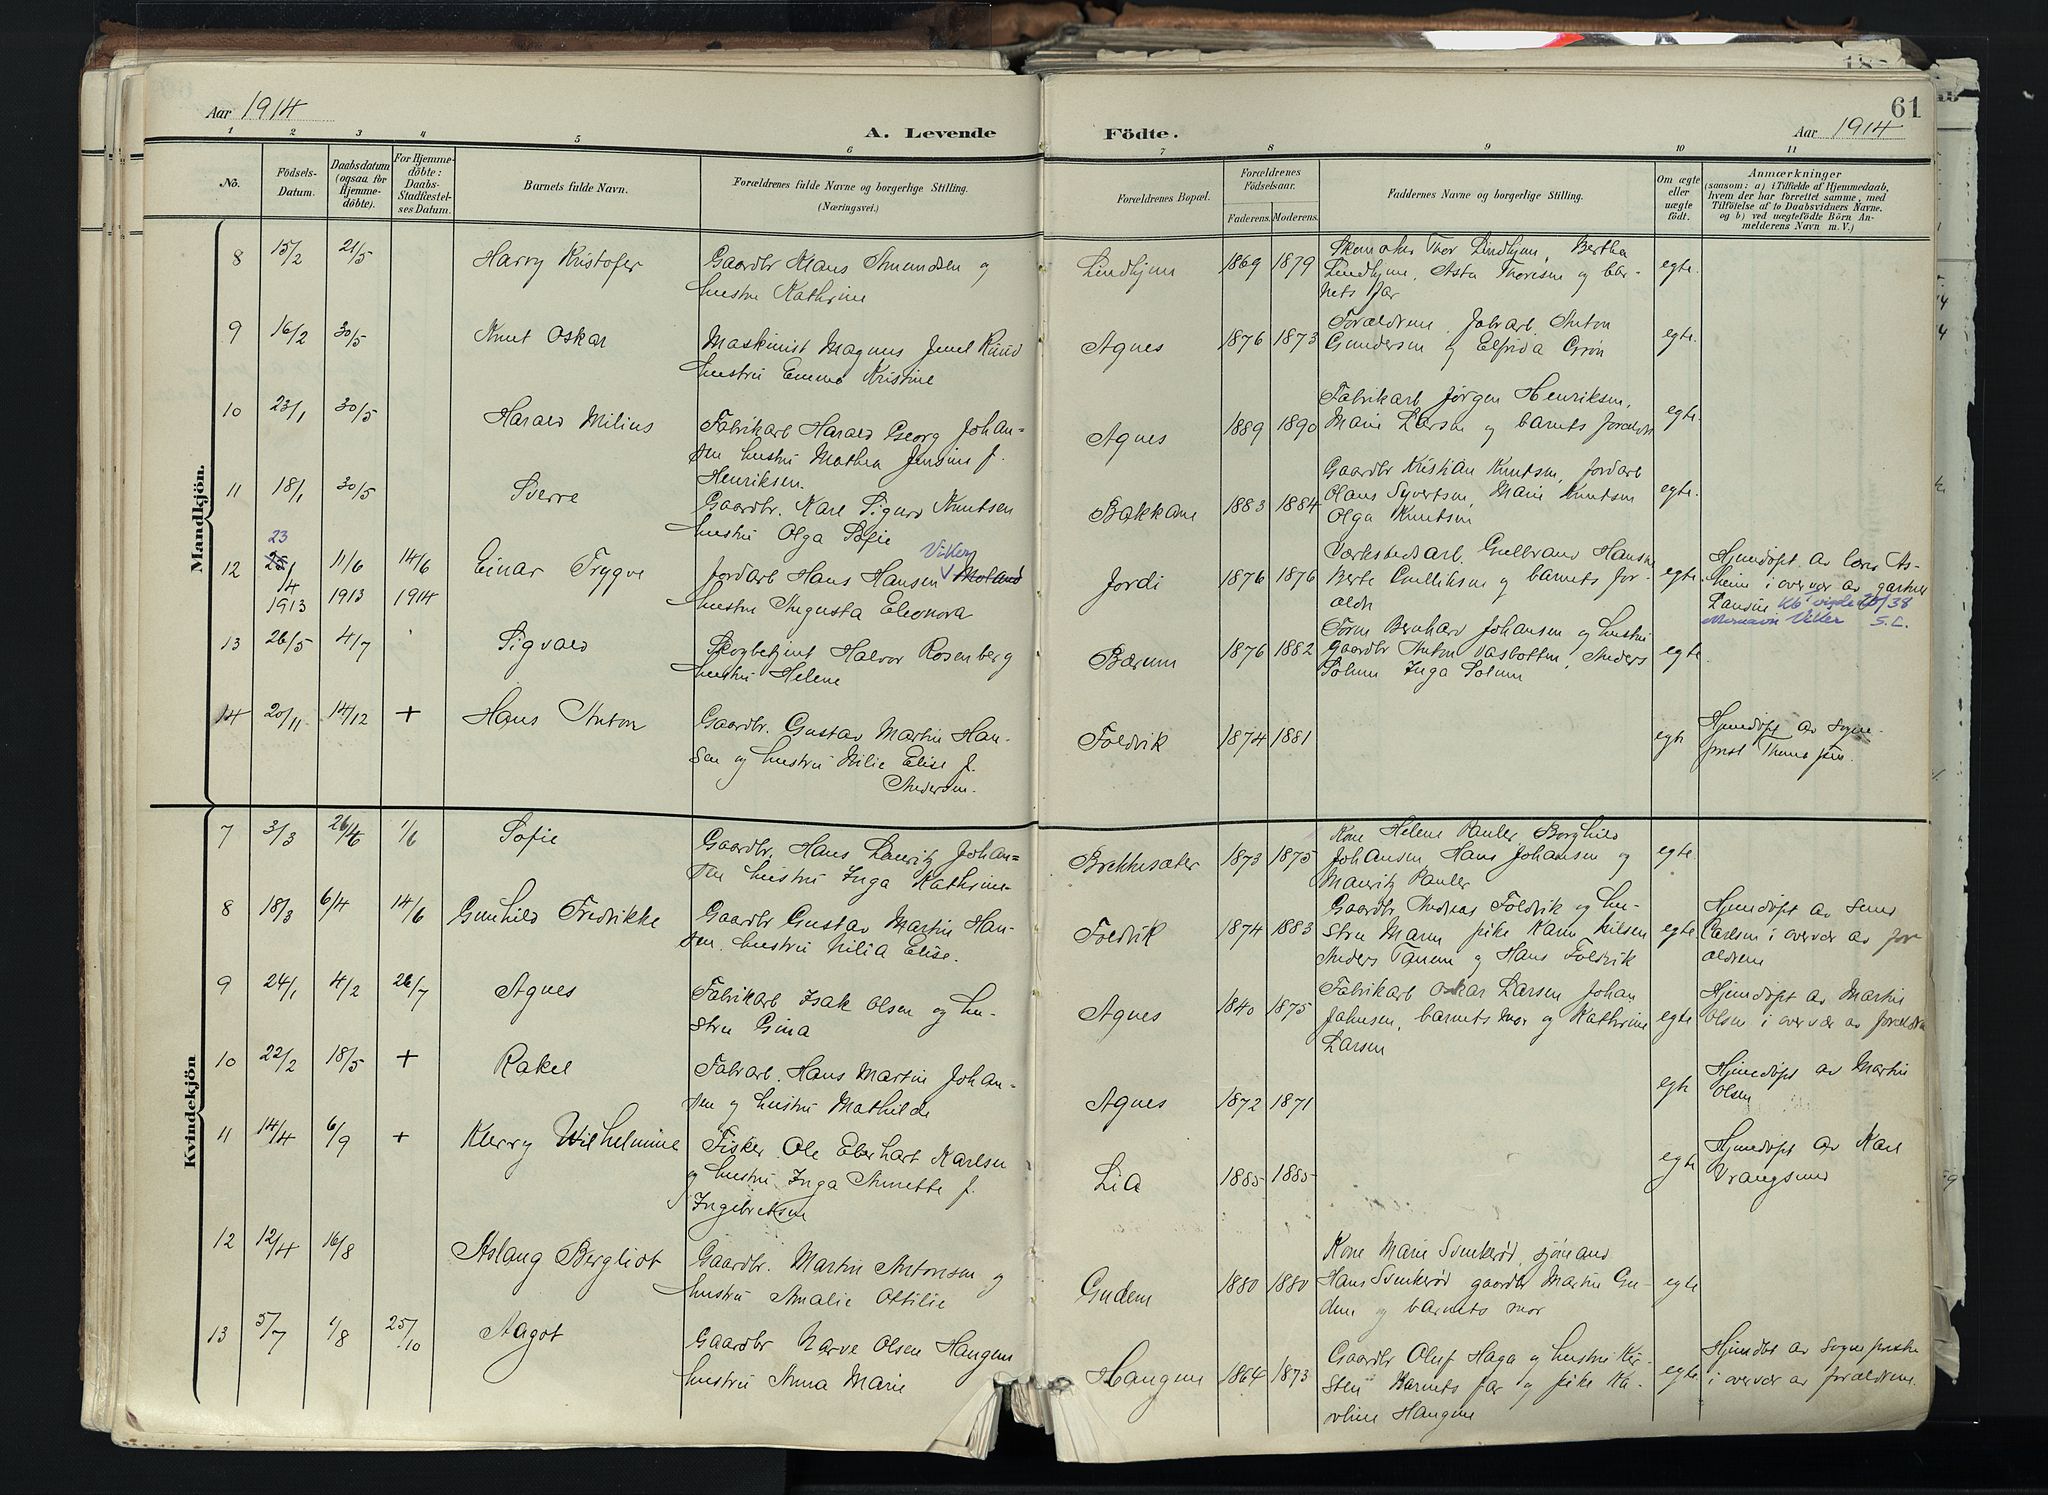 61
Aar 1914
A. Levende Födte.
Aar 1914
1 2 3 4 5 6 7 8 9 10 11
No.
Födsels-Datum.
Daabsdatum (ogsaa for Hjemme-döbte).
For Hjemme-döbte: Daabs-Stadfæstel-ses Datum.
Barnets fulde Navn.
Forældrenes fulde Navne og borgerlige Stilling.
(Næringsvei.)
Forældrenes Bopæl.
Forældrenes Födselsaar.
Faderens. Moderens.
Faddernes Navne og borgerlige Stilling.
Om ægte eller uægte født.
Anmærkninger
(saasom: a) i Tilfælde af Hjemmedaab,
hvem der har forrettet samme, med
Tilföielse af to Daabsvidners Navne.
og b) ved uægtefödte Börn An-
melderens Navn m. V.)
Mandkjön.
8 15/2 21/5 Harry Kristofer
Gaardbr Hans Amundsen og
hustru Kathrine
Lindhjem 1869 1879
Thor Lindhjem, Bertha
Lindhjem, Asta Thorisen og bar-
nets far
egte.
9 16/2 30/5 Knut Oskar
Maskinist Magnus Juul Ruud
hustru Emma Kristine
Agnes 1876 1873
Forældrene, Fabrarb. Anton
Gundersen og Elfrida Grøn
egte.
10 23/1 30/5 Harald Milius
Fabrikarb Harald Georg Johan-
sen hustru Mathea Jensine f.
Henriksen.
Agnes 1889 1890
Fabrikarb Jørgen Henriksen,
Marie Larsen og barnets forældre
egte.
11 18/1 30/5 Sverre
Gaardbr. Karl Sigurd Knutsen
hustru Olga Sofie
Bakkane 1883 1884
Gaardbr Kristian Knutsen, jordarb
Olaus Syvertsen, Marie Knutsen
Olga Knutsen
egte.
12 23/4 1913 11/6 1913 14/6 1914 Einar Trygve
Jordarb Hans Hansen Viker Moland
hustru Augusta Eleonora
Jordi 1876 1876
Værkstedsarb. Gulbrand Hansen
Berte Gulliksen og barnets for-
ældre
egte
Hjemdøpt av lærer As-
heim i overvær av gartner
Larsen Kb vigde 20/38
Mornavn Viker S. L.
13 26/5 4/7 Sigvald
Skogbetjent Halvor Rosenberg
hustru Helene
Bærum 1876 1882
Form Bernhard Johansen og hustru
Gaardbr Anton Vasbotten, Anders
Solum Inga Solum
egte
14 20/11 14/12 + Hans Anton
Gaardbr. Gustav Martin Han-
sen og hustru Nilie Elise f.
Andersen.
Foldvik 1874 1881
egte
Hjemdøpt av sogne-
prest
Kvindekjön
7 3/3 26/4 1/6 Sofie
Gaardbr. Hans Lauritz Johan-
sen hustru Inga Kathrine
Brekkesæter 1873 1875
Kone Helene Pauler Borghild
Johansen, Hans Johansen og
Mauritz Pauler
egte.
8 18/3 6/4 14/6 Gunhild Fredrikke
Gaardbr Gustav Martin Han-
sen. hustru Nilia Elise.
Foldvik 1874 1883
Gaardbr Andreas Foldvik og hu-
stru Maren pike Karen Nilsen
Anders Tanem og Hans Foldvik
egte
Hjemdøpt av
Carlsen i overvær av for
ældrene
9 24/1 4/2 26/7 Agnes
Fabrikarb Isak Olsen og hu-
stru Gina
Agnes 1840 1875
Fabrikarb Oskar Larsen Johan
Johnsen, barnets mor og Kathrine
Larsen
egte
Hjemdøpt av Martin
Olsen i overvær av forældrene
10 22/2 18/5 + Rakel
Fabrarb. Hans Martin Johan-
sen og hustru Mathilde
Agnes 1872 1871
egte
Hjemdøpt av Martin
Olsen
11 14/4 6/9 + Klerry Wilhelmine
Fisker. Ole Eberhart Karlsen
og hustru Inga Annette f.
Ingebriktsen
Lia 1885 1885
egte
Hjemdøpt av Karl
Vrangsund
12 12/4 16/8 Aslaug Bergliot
Gaardbr. Martin Antonsen og
hustru Amalie Ottilie
Gudem 1880 1880
Kone Marie Svinkerød, sjømand
Hans Svinkerød gaardbr Martin Gu-
dem og barnets mor
egte
13 5/7 1/8 25/10 Aagot
Gaardbr Narve Olsen Haugen
hustru Anna Marie
Haugene 1864 1873
Gaardbr Oluf Haga og hustru Kir-
sten Barnets far og pike Ka-
roline Haugene
egte
Hjemdøbt av Sogneprest
i overvær av forældrene.